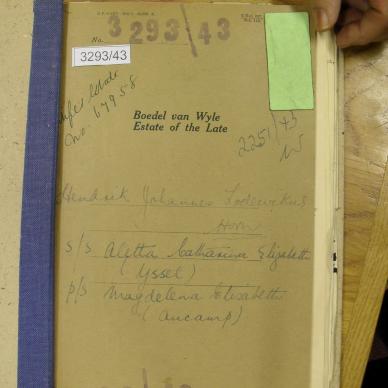 No. 3293/43
3293/43
No. 67958
Boedel van Wyle
Estate of the Late
2251/43
Hendrik Johannes Lodewikus
Horn
s/s Aletta Catharina Elizabeth
(Yssel)
p/s Magdelena Elisabeth
(Aucamp)